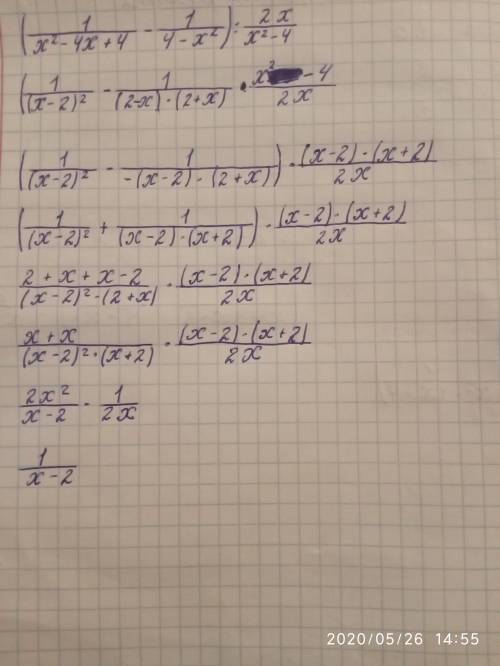 (1/(x² - 4x + 4) - 1/(4 - x²)) : 2x/(x² - 4)
(1/(x-2)² - 1/((2-x)·(2+x)) · (x² - 4)/2x
(1/(x-2)² - 1/(-(x-2)·(2+x))) · ((x-2)·(x+2))/2x
(1/(x-2)² + 1/((x-2)·(x+2))) · ((x-2)·(x+2))/2x
(2 + x + x - 2)/((x-2)²·(2+x)) · ((x-2)·(x+2))/2x
(x + x)/((x-2)²·(x+2)) · ((x-2)·(x+2))/2x
2x²/(x-2) · 1/2x
1/(x-2)
2020/05/26 14:55